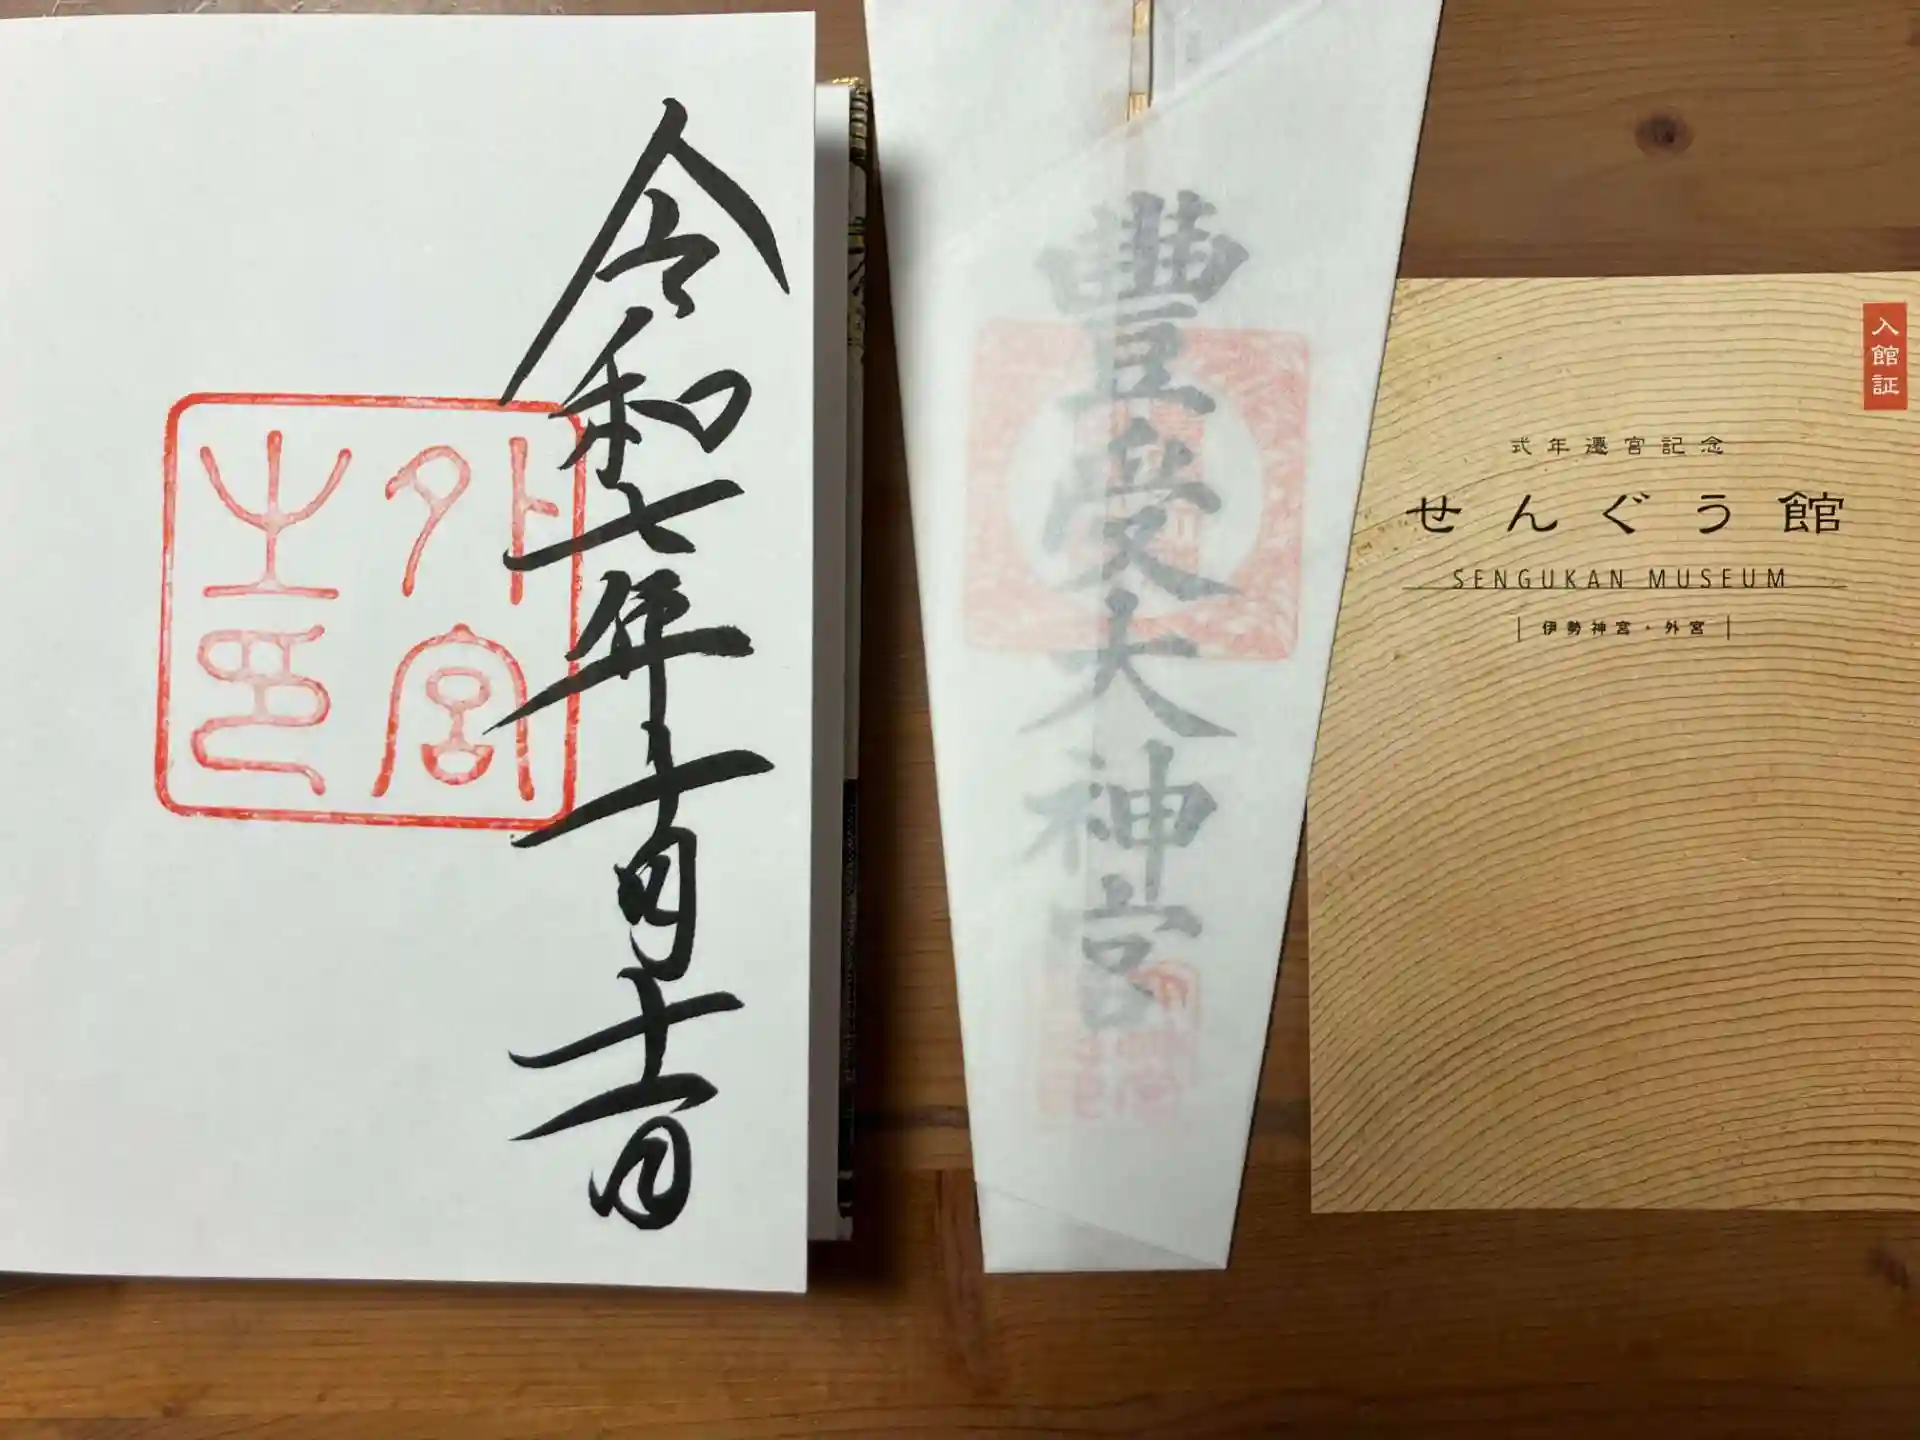 令和七年十一月十一日
外宮
之印
豊受大神宮
入館証
式年遷宮記念
せんぐう館
SENGUKAN MUSEUM
伊勢神宮・外宮